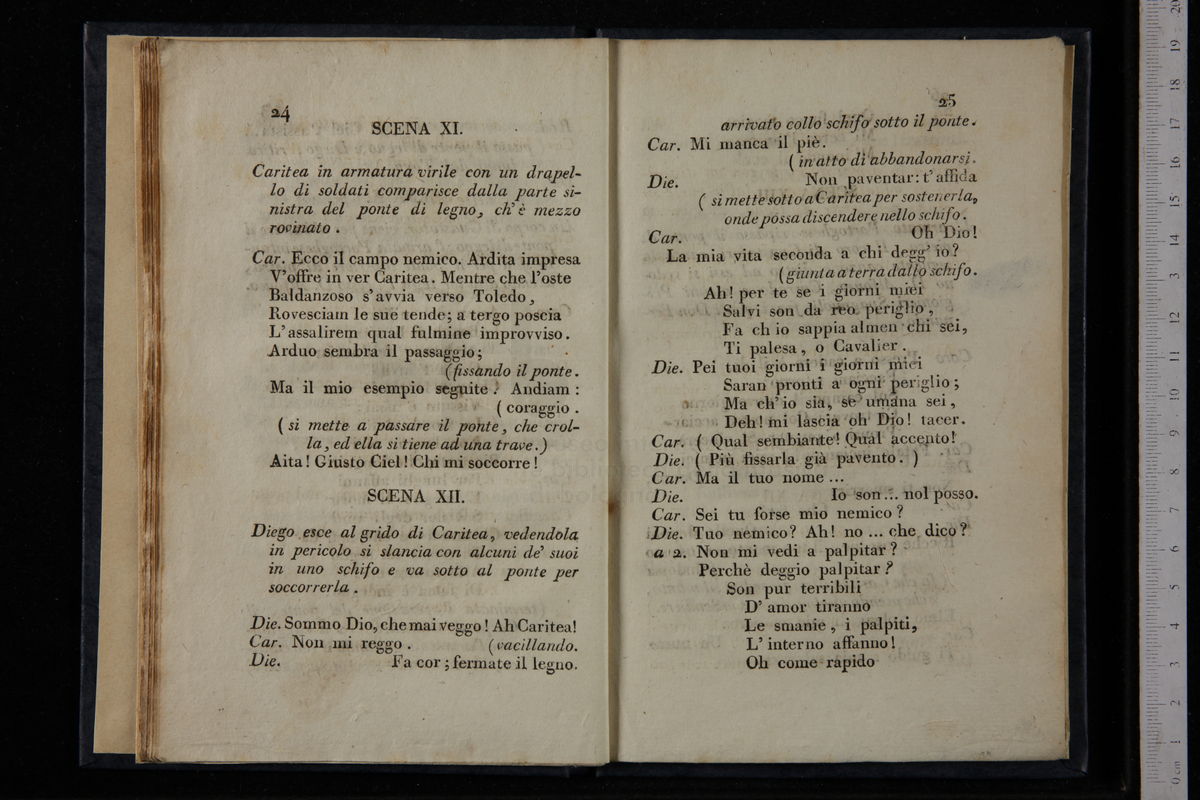 24
SCENA XI.
Caritea in armatura virile con un drapel-
lo di soldati comparisce dalla parte si-
nistra del ponte di legno, ch' è mezzo
rovinato .
Car. Ecco il campo nemico. Ardita impresa
V'offre in ver Caritea. Mentre che l'oste
Baldanzoso s'avvia verso Toledo,
Rovesciam le sue tende; a tergo poscia
L'assalirem qual fulmine improvviso.
Arduo sembra il passaggio;
(fissando il ponte.
Ma il mio esempio seguite. Andiam :
( coraggio .
( si mette a passare il ponte, che crol-
la, ed ella si tiene ad una trave.)
Aita! Giusto Ciel! Chi mi soccorre!
SCENA XII.
Diego esce al grido di Caritea, vedendola
in pericolo si slancia con alcuni de' suoi
in uno schifo e va sotto al ponte per
soccorrerla .
Die. Sommo Dio, che mai veggo! Ah Caritea!
Car. Non mi reggo . (vacillando.
Die. Fa cor; fermate il legno.
25
arrivato collo schifo sotto il ponte.
Car. Mi manca il piè.
( in atto di abbandonarsi.
Die. Non paventar: t'affida
( si mette sotto a Caritea per sostenerla,
onde possa discendere nello schifo.
Car. Oh Dio!
La mia vita seconda a chi degg' io?
(giunta a terra dallo schifo.
Ah! per te se i giorni miei
Salvi son da reo periglio,
Fa ch io sappia almen chi sei,
Ti palesa, o Cavalier.
Die. Pei tuoi giorni i giorni miei
Saran pronti a ogni periglio;
Ma ch'io sia, se umana sei,
Deh! mi lascia oh Dio! tacer.
Car. ( Qual sembiante! Qual accento!
Die. ( Più fissarla già pavento. )
Car. Ma il tuo nome ...
Die. Io son ... nol posso.
Car. Sei tu forse mio nemico?
Die. Tuo nemico? Ah! no ... che dico?
a 2. Non mi vedi a palpitar?
Perchè deggio palpitar?
Son pur terribili
D' amor tiranno
Le smanie, i palpiti,
L' interno affanno!
Oh come rapido
0 cm 1 2 3 4 5 6 7 8 9 10 11 12 13 14 15 16 17 18 19 20